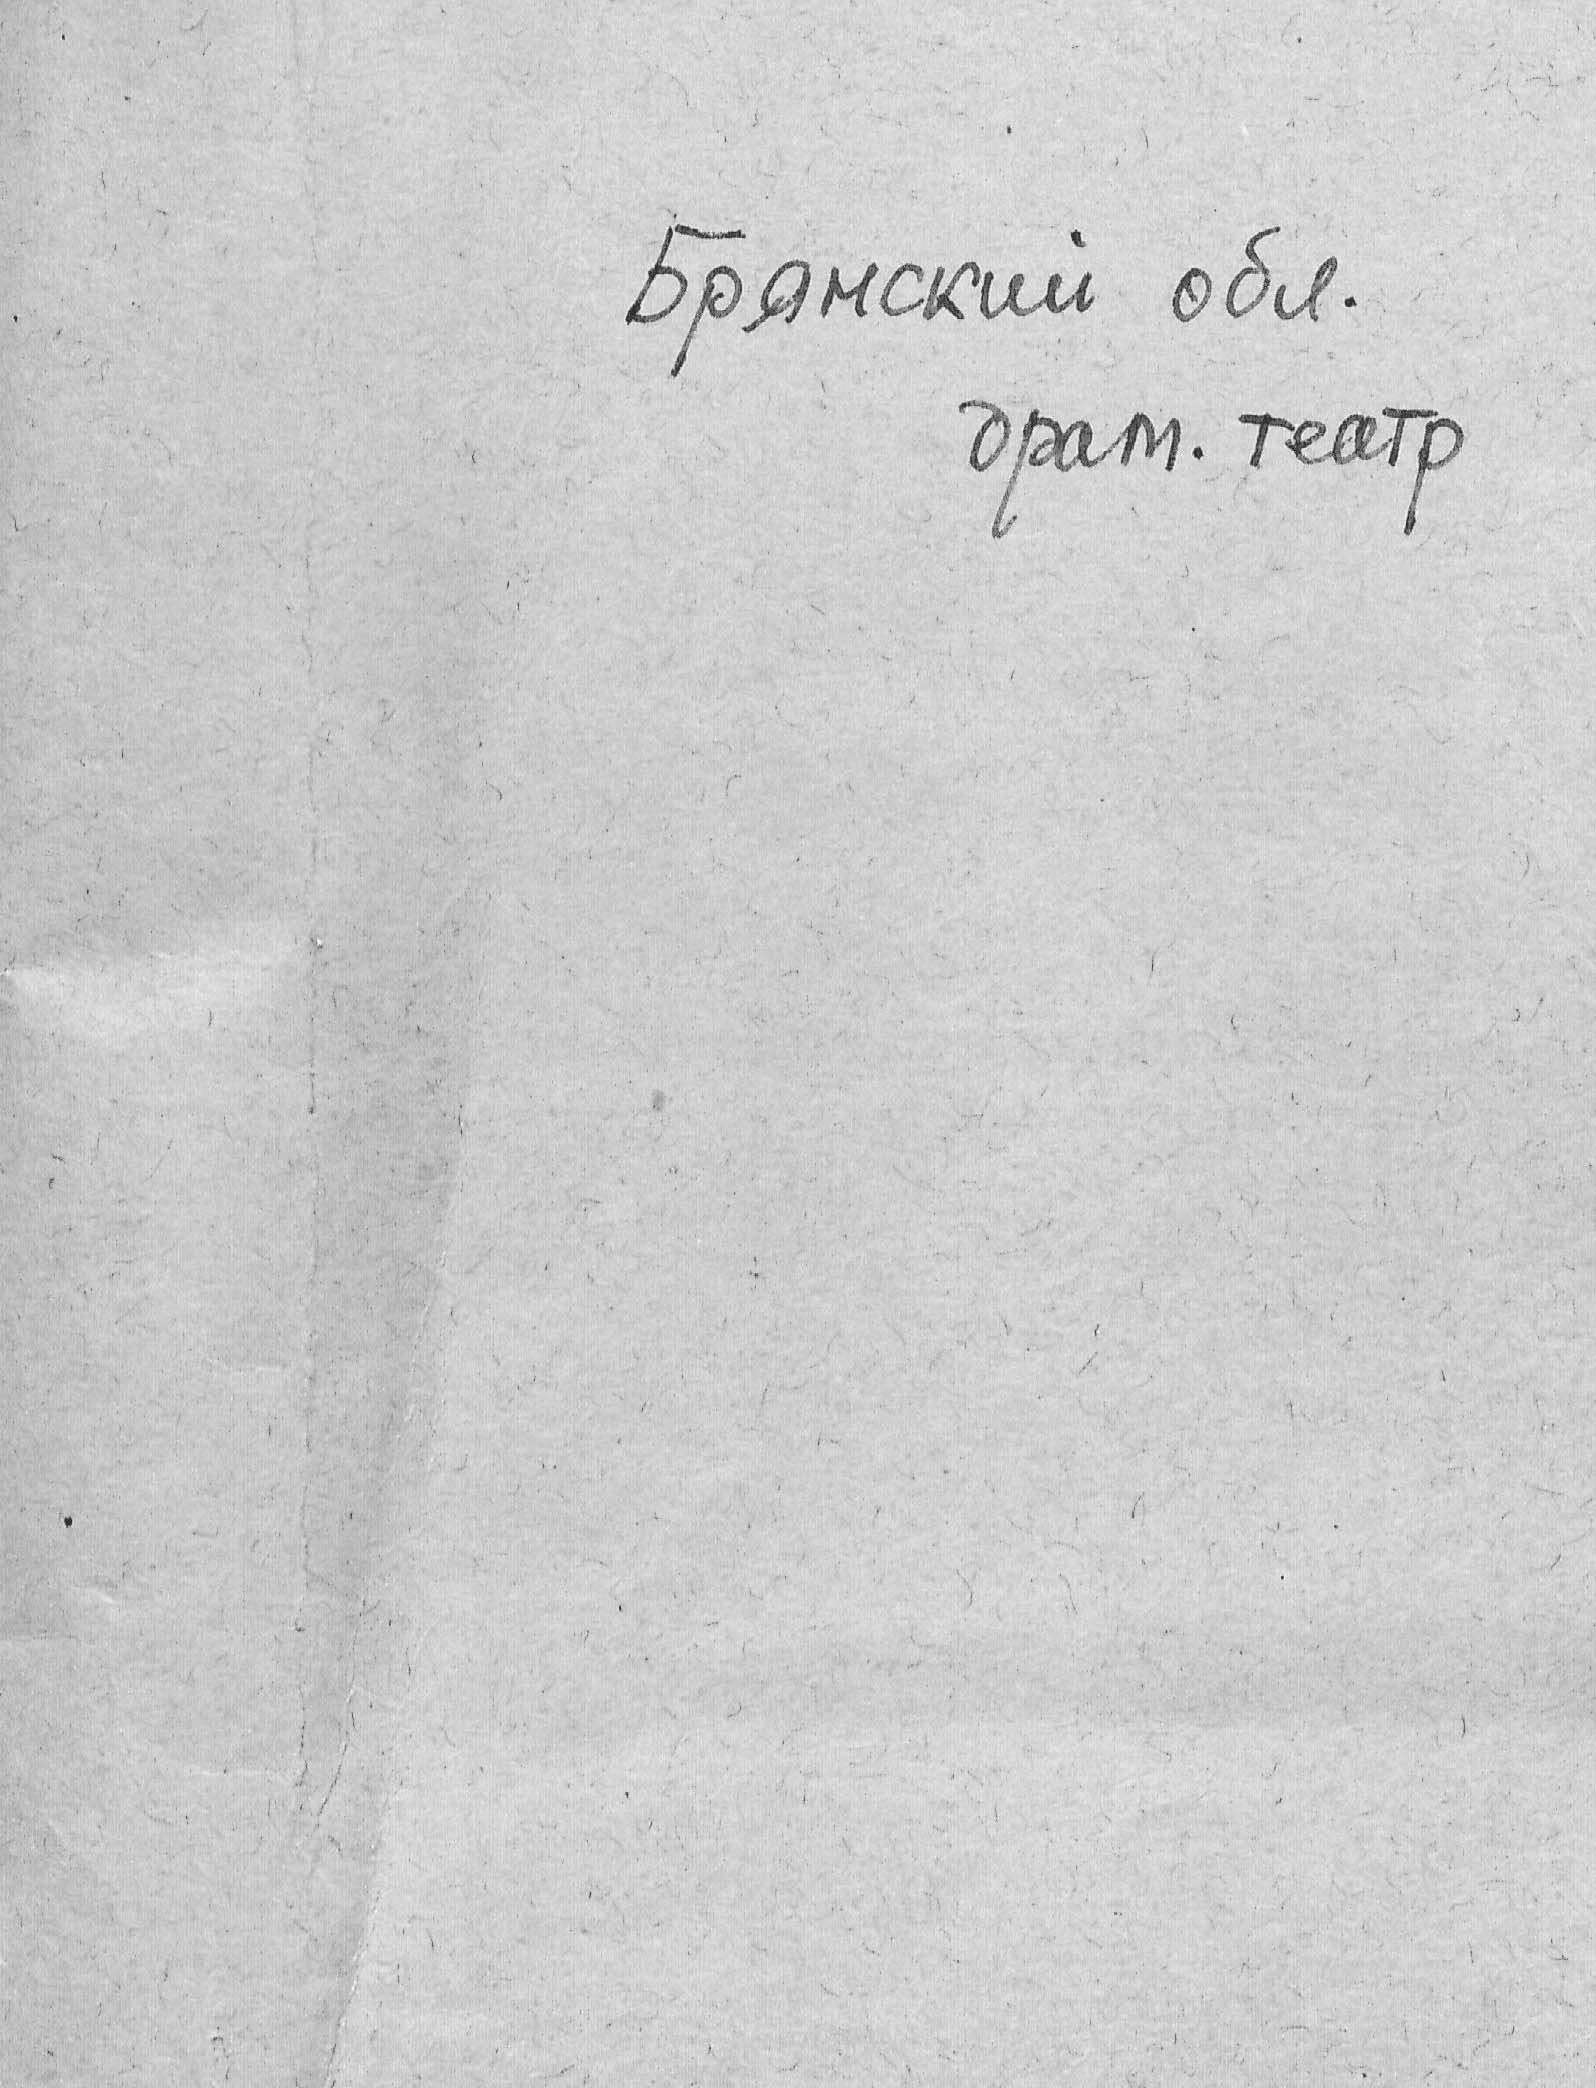 Брянский обл.
драм. театр